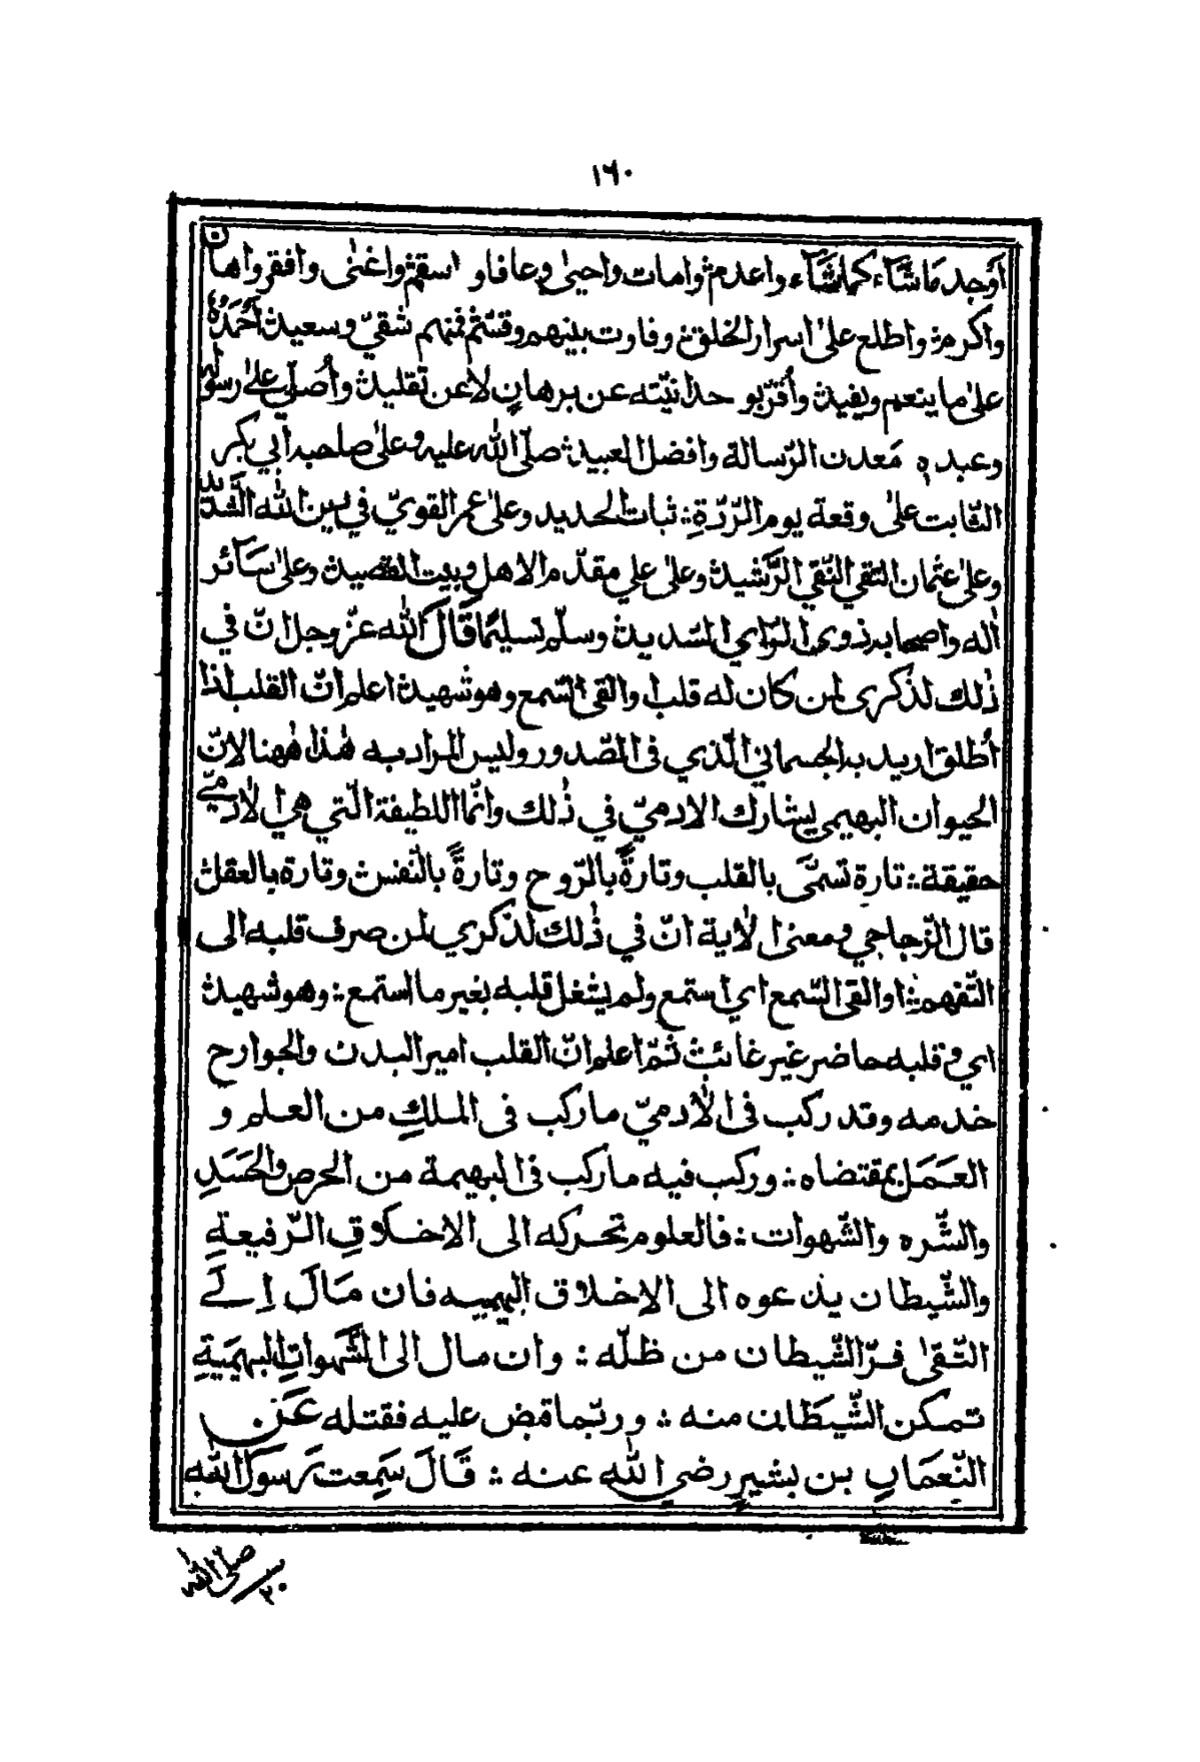 ١٦٠
أوجد ما شآء كما شآء واعدم ؞ وامات واحيى وعافا و اسقم ؞ واغنى وافقر واهان
واكرم ؞ واطلع على اسرار الخلق ؞ وفاوت بينهم وقسّم ؞ فمنهم شقيّ وسعيد ؞ أحمَدُهُ
على ما ينعم ويفيد ؞ وأُقرّ بو حدانيّته عن برهانٍ لا عن تقليد ؞ وأُصلّي على رسوله
وعبده ؞ مَعدن الرّسالة وافضل العبيد ؞ صلّى الله عليه وعلى صاحبه أبي بكر
الثّابت على وقعة يوم الرّدّةِ ؞ ثبات الحديد وعلى عمر القويّ في دين الله الشّديد
وعلى عثمان التقي النّقي الرّشيد ؞ وعلى علي مقدّم الاهل وبيت القصيد ؞ وعلى سَائر
أله واصحابه ذوي الرّاي السّديد ؞ وسلّم تسليمًا قَالَ الله عزّ وجل انّ في
ذٰلك لذكرى لمن كان له قلب او القى السّمع وهو شهيد ؞ اعلم انّ القلب اذا
أطلق اريد به الجسماني الّذي فى الصّدور وليس المراد به هٰذا هٰهنا لانّ
الحيوان البهيمي يشارك الادميّ في ذٰلك وانّما اللطيفة الّتي هي لأدميّ
حقيقة ؞ تارة تسمّى بالقلب وتارةً بالرّوح وتارةً بالنّفس ؞ وتارة بالعقل ؞
قال الزّجاجي ومعنى الأية انّ في ذٰلك لذكري لمن صرف قلبه الى
التّفهم ؞ او القى السّمع اي استمع ولم يشغل قلبه بغير ما استمع ؞ وهو شهيد ؞
اي وقلبه حاضر غير غائب ؞ ثُمّ اعلم انّ القلب امير البدن والجوارح
خدمه وقد ركب فى الأدميّ ما ركب فى الملكِ من العلم و
العَمَل بمقتضاه ؞ وركب فيه ما ركب فى البهيمة من الحرص والحَسَدِ
والشّره والشّهوات ؞ فالعلوم تحركه الى الاخلاقِ الرّفيعةِ
والشّيطان يدعوه الى الاخلاق البهيميه فان مَالَ اِلَى
التّقىٰ فرّ الشّيطان من ظلّه ؞ وان مال الى الشّهواتِ البهيميةِ
تمكن الشّيطَان منه ؞ وربّما قبض عليه فقتله عَن
النّعمَان بن بشيرٍ رضي الله عنه ؞ قَالَ سَمِعت رَسوُلَ الله
صلّى الله
٢٠